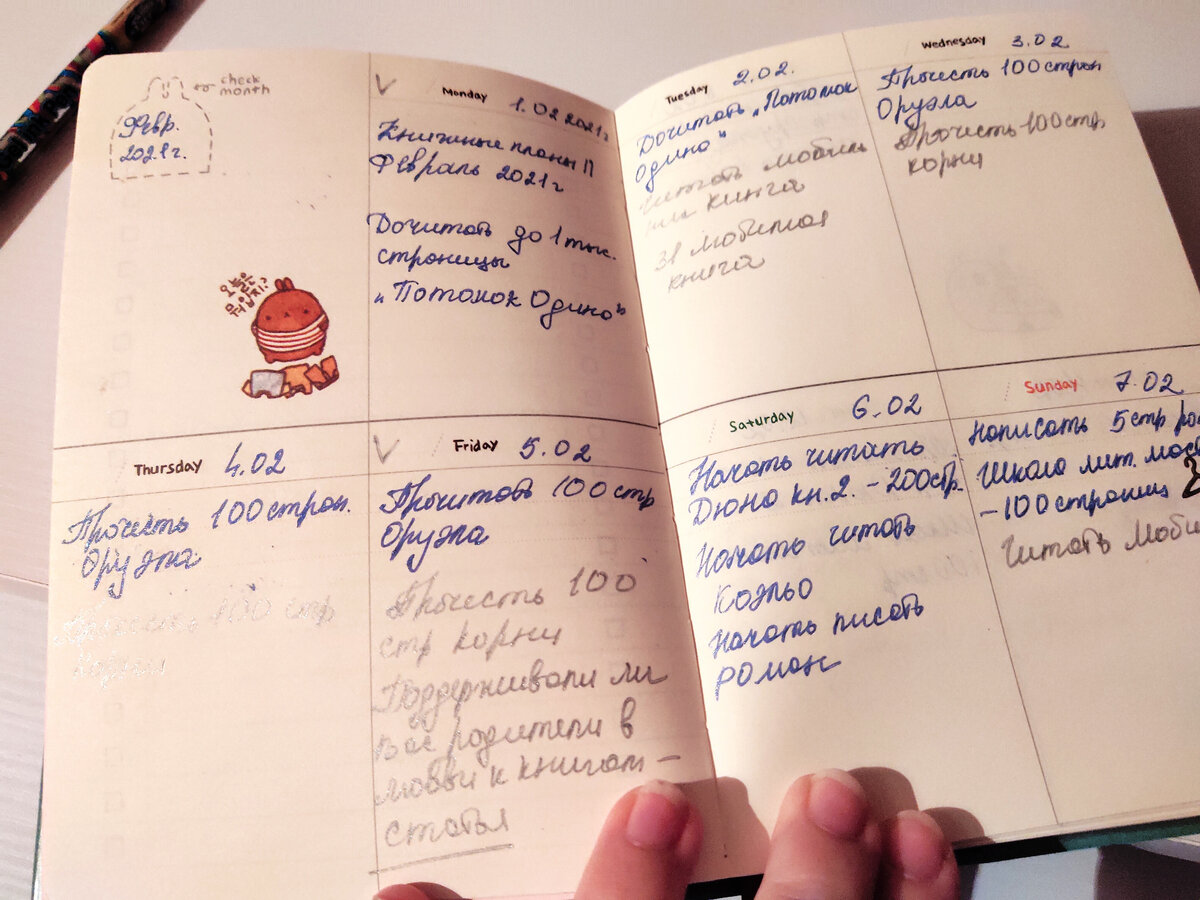 check
month
Февр.
2021г.
오늘은
뭐입지?
Monday 1.02 2021г
Книжные планы П
Февраль 2021г
Дочитать до 1 тыс.
страницы
„Потомок Одина"
Tuesday 2.02.
Дочитать „Потомок
Одина"
Читать мобиль
книга
31 мобильная
книга
Wednesday 3.02
Прочесть 100 стран
Оруэла
Прочесть 100 стр.
корни
Thursday 4.02
Прочесть 100 стран.
Оруэла
Прочесть 100 стр
корни
Friday 5.02
Прочитать 100 стр
Оруэла
Прочесть 100
стр корни
Поддерживали ли
Вас родители в
любви к книгам –
статья
Saturday 6.02
Начать читать
Дюна кн.2. – 200стр.
Начать читать
Коэльо
Начать писать
роман
Sunday 7.02
Написать 5 стр ро
Школа лит. мас
– 100 страниц
Читать Моби